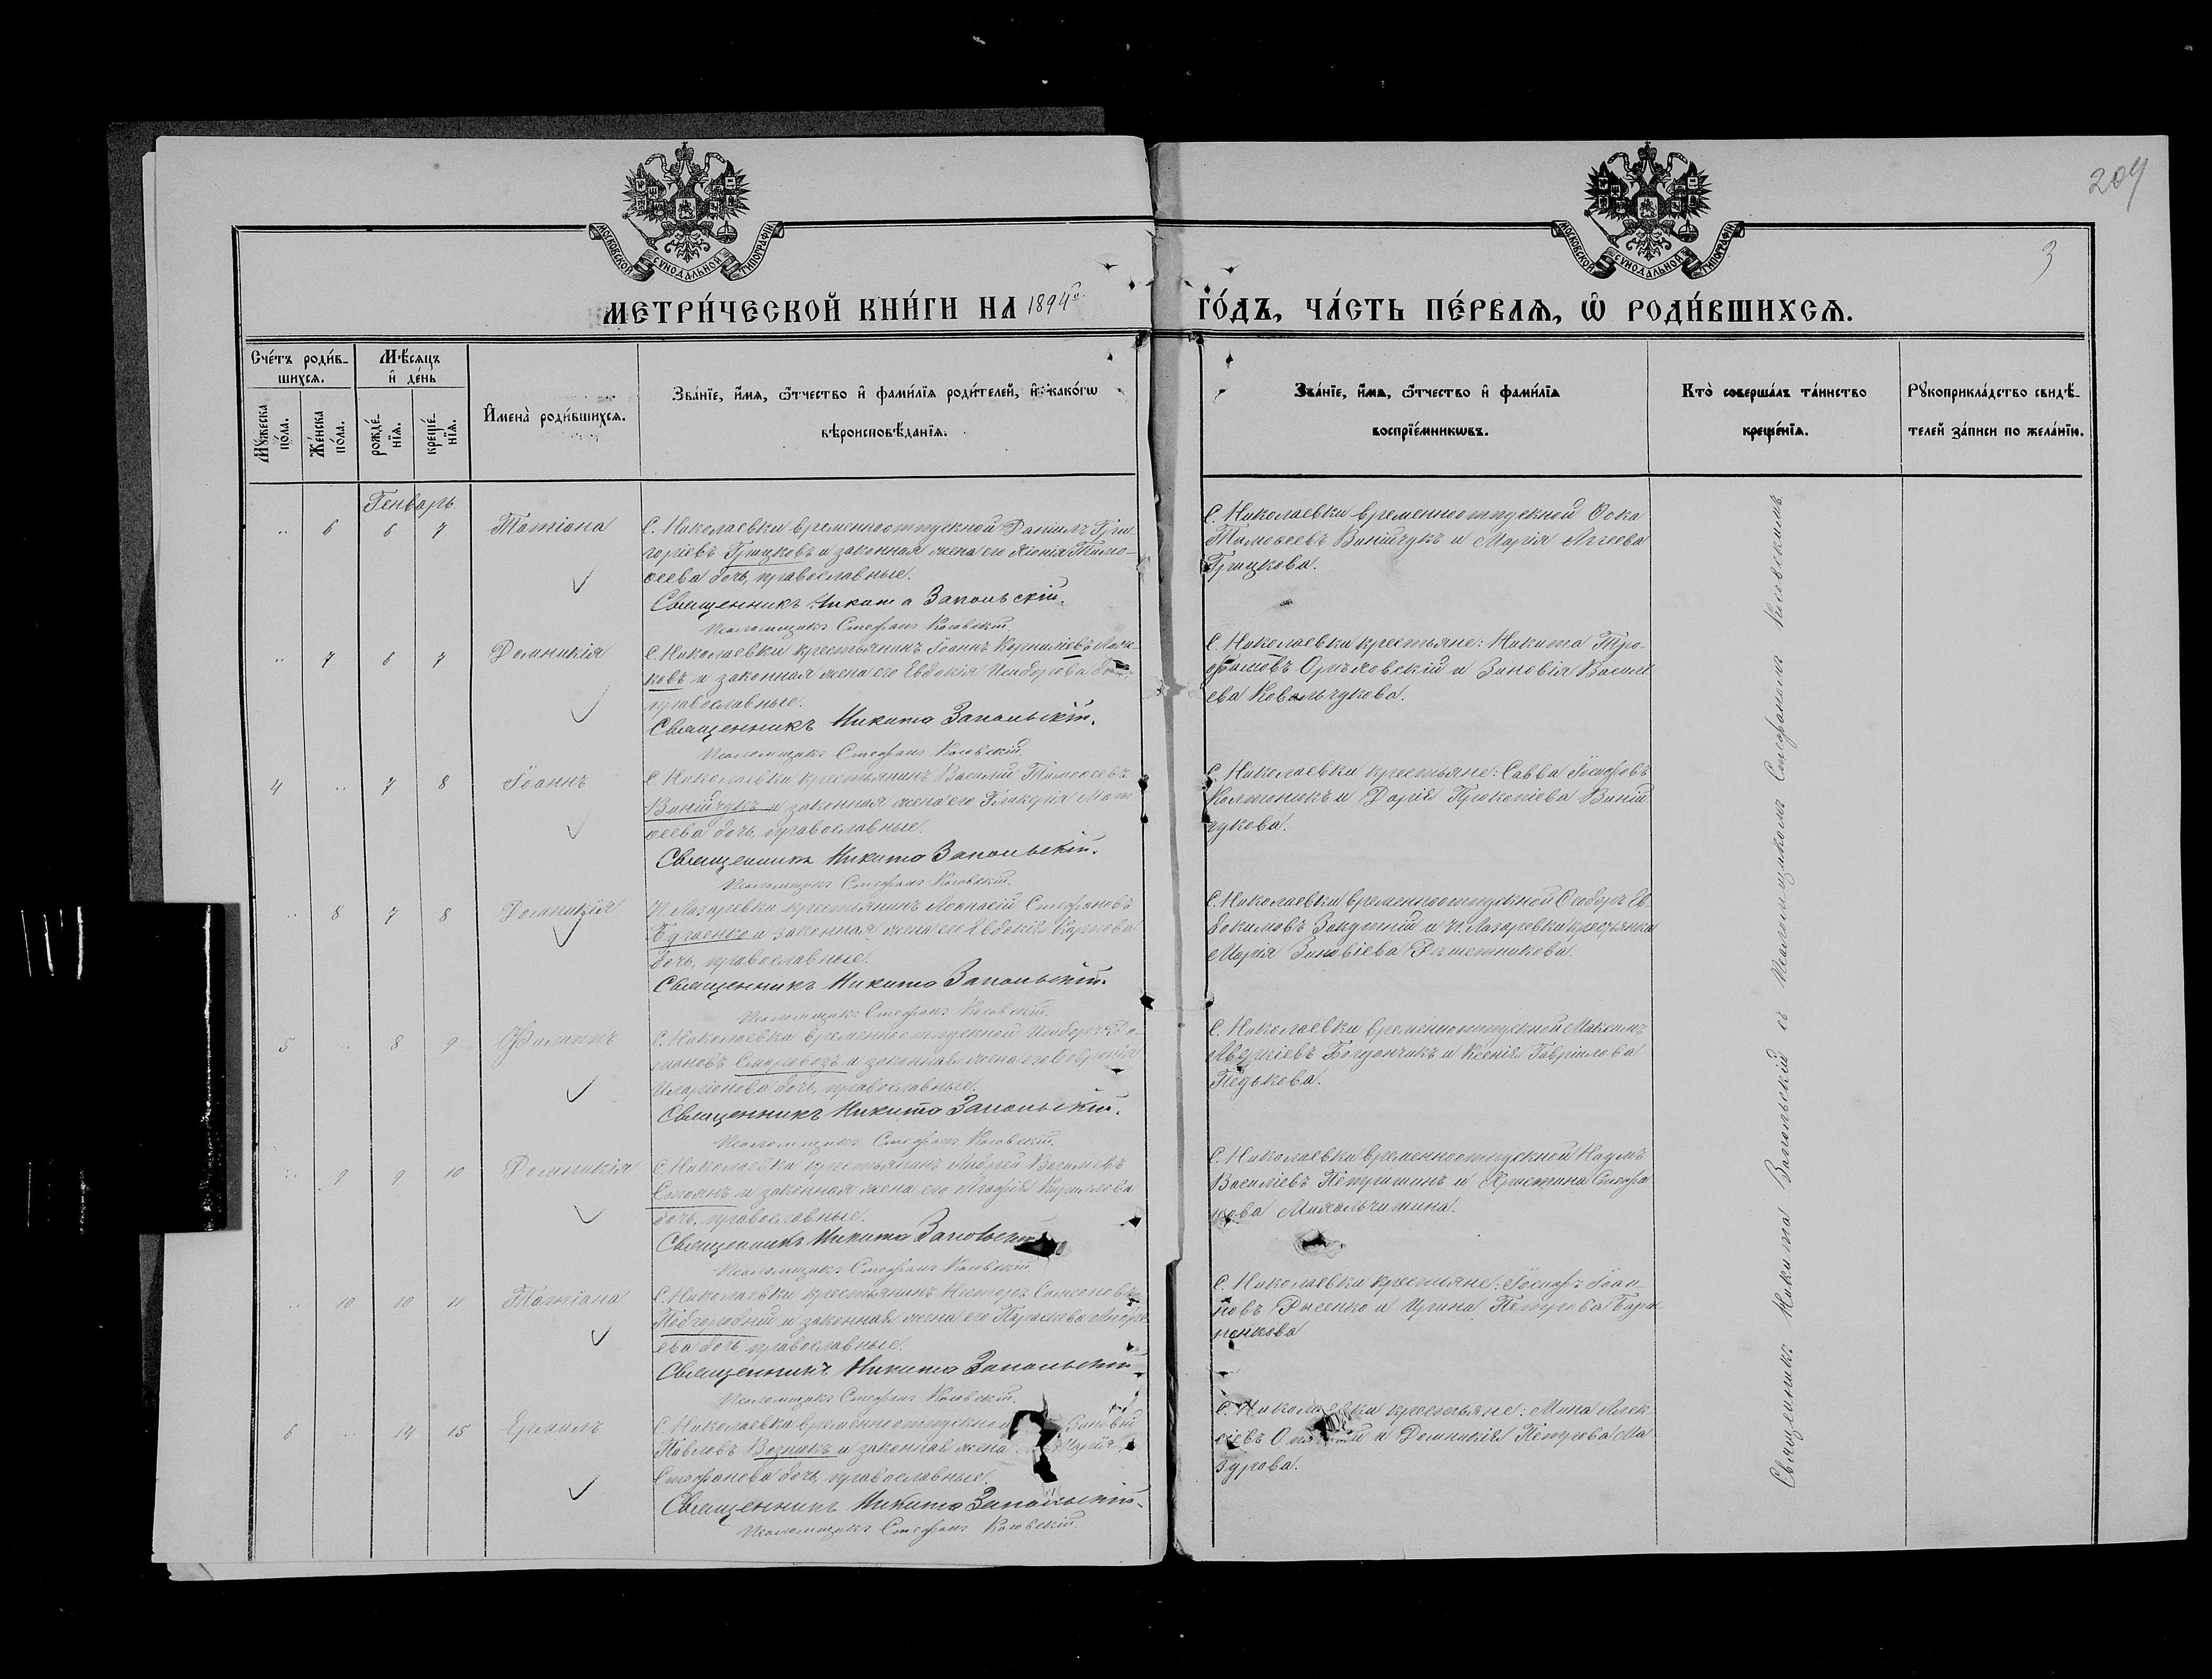 209
3
МОСКОВСКОЙ СѴНОДАЛЬНОЙ ТИПОГРАФІИ
МОСКОВСКОЙ СѴНОДАЛЬНОЙ ТИПОГРАФІИ
МЕТРИ́ЧЕСКОЙ КНИ́ГИ НА 1894й ГО́ДЪ, ЧА́СТЬ ПЕ́РВАѦ, Ѡ҆ РОДИ́ВШИХСѦ.
Сче́тъ роди́в-
шихсѧ.
Мѣ́сѧцъ
и҆ де́нь
Мꙋ́жеска
по́ла.
Же́нска
по́ла.
рожде́-
нїѧ.
креще́-
нїѧ.
И҆мена̀ роди́вшихсѧ.
Зва́нїе, и҆́мѧ, ѻ҆́тчество и҆ фами́лїѧ роди́телей, и҆ како́гѡ
вѣроисповѣ́данїѧ.
Зва́нїе, и҆́мѧ, ѻ҆́тчество и҆ фами́лїѧ
воспрїе́мникѡвъ.
Кто̀ соверша́лъ та́инство
креще́нїѧ.
Рꙋкоприкла́дство свидѣ́-
телей за́писи по жела́нїю.
Генварь.
" 6 6 7 Татіана
С. Николаевки временноотпускной Даніилъ Гри-
горіевъ Грицковъ и законная жена его Хіонія Тимо-
ѳеева дочь, православные.
Священникъ Никита Запольскій.
Псаломщикъ Стефанъ Косовскій.
С. Николаевки временноотпускной Ѳока
Тимоѳеевъ Винійчукъ и Марія Аггеева
Грицкова.
" 7 6 7 Домникія
С. Николаевки крестьянинъ Іоаннъ Корниліевъ
ковъ и законная жена его Евдокія Исидорова дочь,
православные.
Священникъ Никита Запольскій.
Псаломщикъ Стефанъ Косовскій.
С. Николаевки крестьяне: Никита Тро-
фимовъ и Зиновія Василі
ева Ковальчукова.
4 " 7 8 Іоаннъ
С. Николаевки крестьянинъ Василій Тимоѳеевъ
Винійчукъ и законная жена его Гликерія Мат
ѳеева дочь, православные.
Священникъ Никита Запольскій.
Псаломщикъ Стефанъ Косовскій.
С. Николаевки крестьяне: Савва Іосифовъ
и Дарія Прокопіева Виній
чукова.
" 8 7 8 Домникія
П. Лазаревки крестьянинъ Аѳанасій Стефановъ
Бугаенко и законная жена его Евдокія Карпова
дочь, православные.
Священникъ Никита Запольскій.
Псаломщикъ Стефанъ Косовскій.
С. Николаевки временноотпускной Ѳеодоръ Ев
докимовъ и п. Лазаревки крестьянка
Марія Зиновіева Рѣшетникова.
5 " 8 9 Филиппъ
С. Николаевки временноотпускной Исидоръ Ро-
мановъ Сыровозъ и законная жена его Февронія
Иларіонова дочь, православные.
Священникъ Никита Запольскій.
Псаломщикъ Стефанъ Косовскій.
С. Николаевки временноотпускной Максимъ
Аверкіевъ Богданчикъ и Ксенія Гавріилова
Педькова.
" 9 9 10 Домникія
С. Николаевки крестьянинъ Андрей Василіевъ
Стоянъ и законная жена его Агафія Кириллова
дочь, православные.
Священникъ Никита Запольскій
Псаломщикъ Стефанъ Косовскій.
С. Николаевки временноотпускной Наумъ
Василіевъ Петришинъ и Христина Стефа
нова Михальчишина.
" 10 10 11 Татіана
С. Николаевки крестьянинъ Несторъ Симеоновъ
Подгородній и законная жена его Параскева Андре
ева дочь православные.
Священникъ Никита Запольскій
Псаломщикъ Стефанъ Косовскій.
С. Николаевки крестьяне: Іосифъ Іоан-
новъ Рысенко и Ирина Петрова Бара
ненкова
6 " 14 15 Ермилъ
С. Николаевки временноотпускной Зиновій
Павловъ Вознюкъ и законная жена его Марія
Стефанова дочь, православные.
Священникъ Никита Запольскій.
Псаломщикъ Стефанъ Косовскій.
С. Николаевки крестьяне: Мина Алек
сіевъ и Домникія Петрова Ма
зурова.
Священникъ Никита Запольскій съ псаломщикомъ Стефаномъ Косовскимъ.